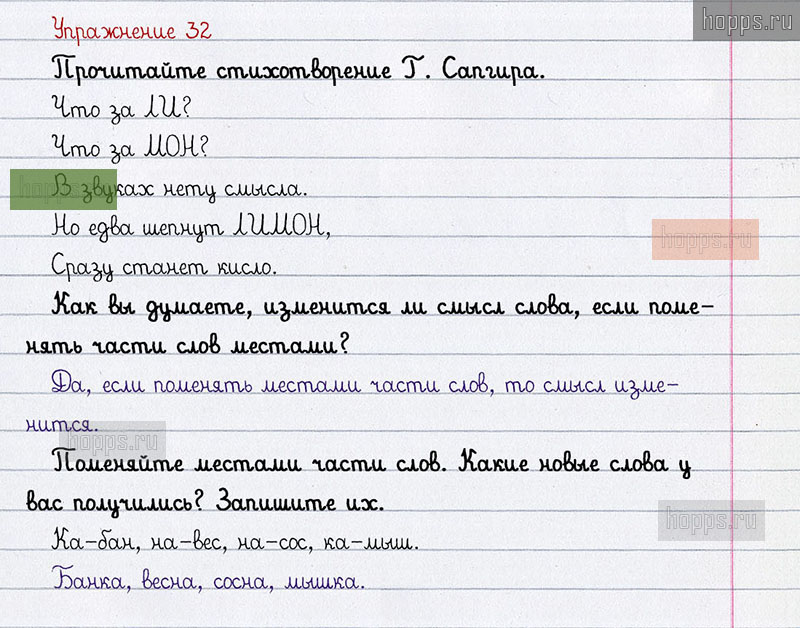 hopps.ru
Упражнение 32
Прочитайте стихотворение Г. Сапгира.
Что за ЛИ?
Что за МОН?
hopps.ru
В звуках нету смысла.
Но едва шепнут ЛИМОН,
hopps.ru
Сразу станет кисло.
Как вы думаете, изменится ли смысл слова, если поме-
нять части слов местами?
Да, если поменять местами части слов, то смысл изме-
нится.
hopps.ru
Поменяйте местами части слов. Какие новые слова у
вас получились? Запишите их.
hopps.ru
Ка-бан, на-вес, на-сос, ка-мыш.
Банка, весна, сосна, мышка.